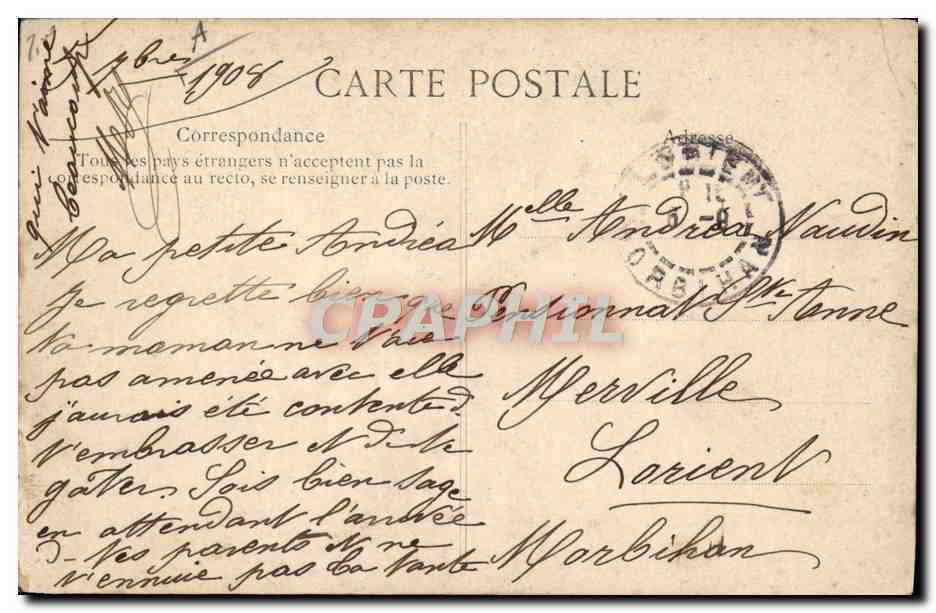 A
7bre 1908
CARTE POSTALE
Correspondance
Tous les pays étrangers n'acceptent pas la
correspondance au recto, se renseigner à la poste.
Adresse
LORIENT
MORBIHAN
Ma petite Andréa
je regrette bien que
ta maman ne t'aie
pas amenée avec elle
j'aurais été contente d
t'embrasser et d te
gâter. Sois bien sage
en attendant l'arrivée
d tes parents et ne
t'ennuie pas ta tante
qui t'aime
beaucoup
Melle Andréa Naudin
Pensionnat Ste Anne
Merville
Lorient
Morbihan
CRAPHIL